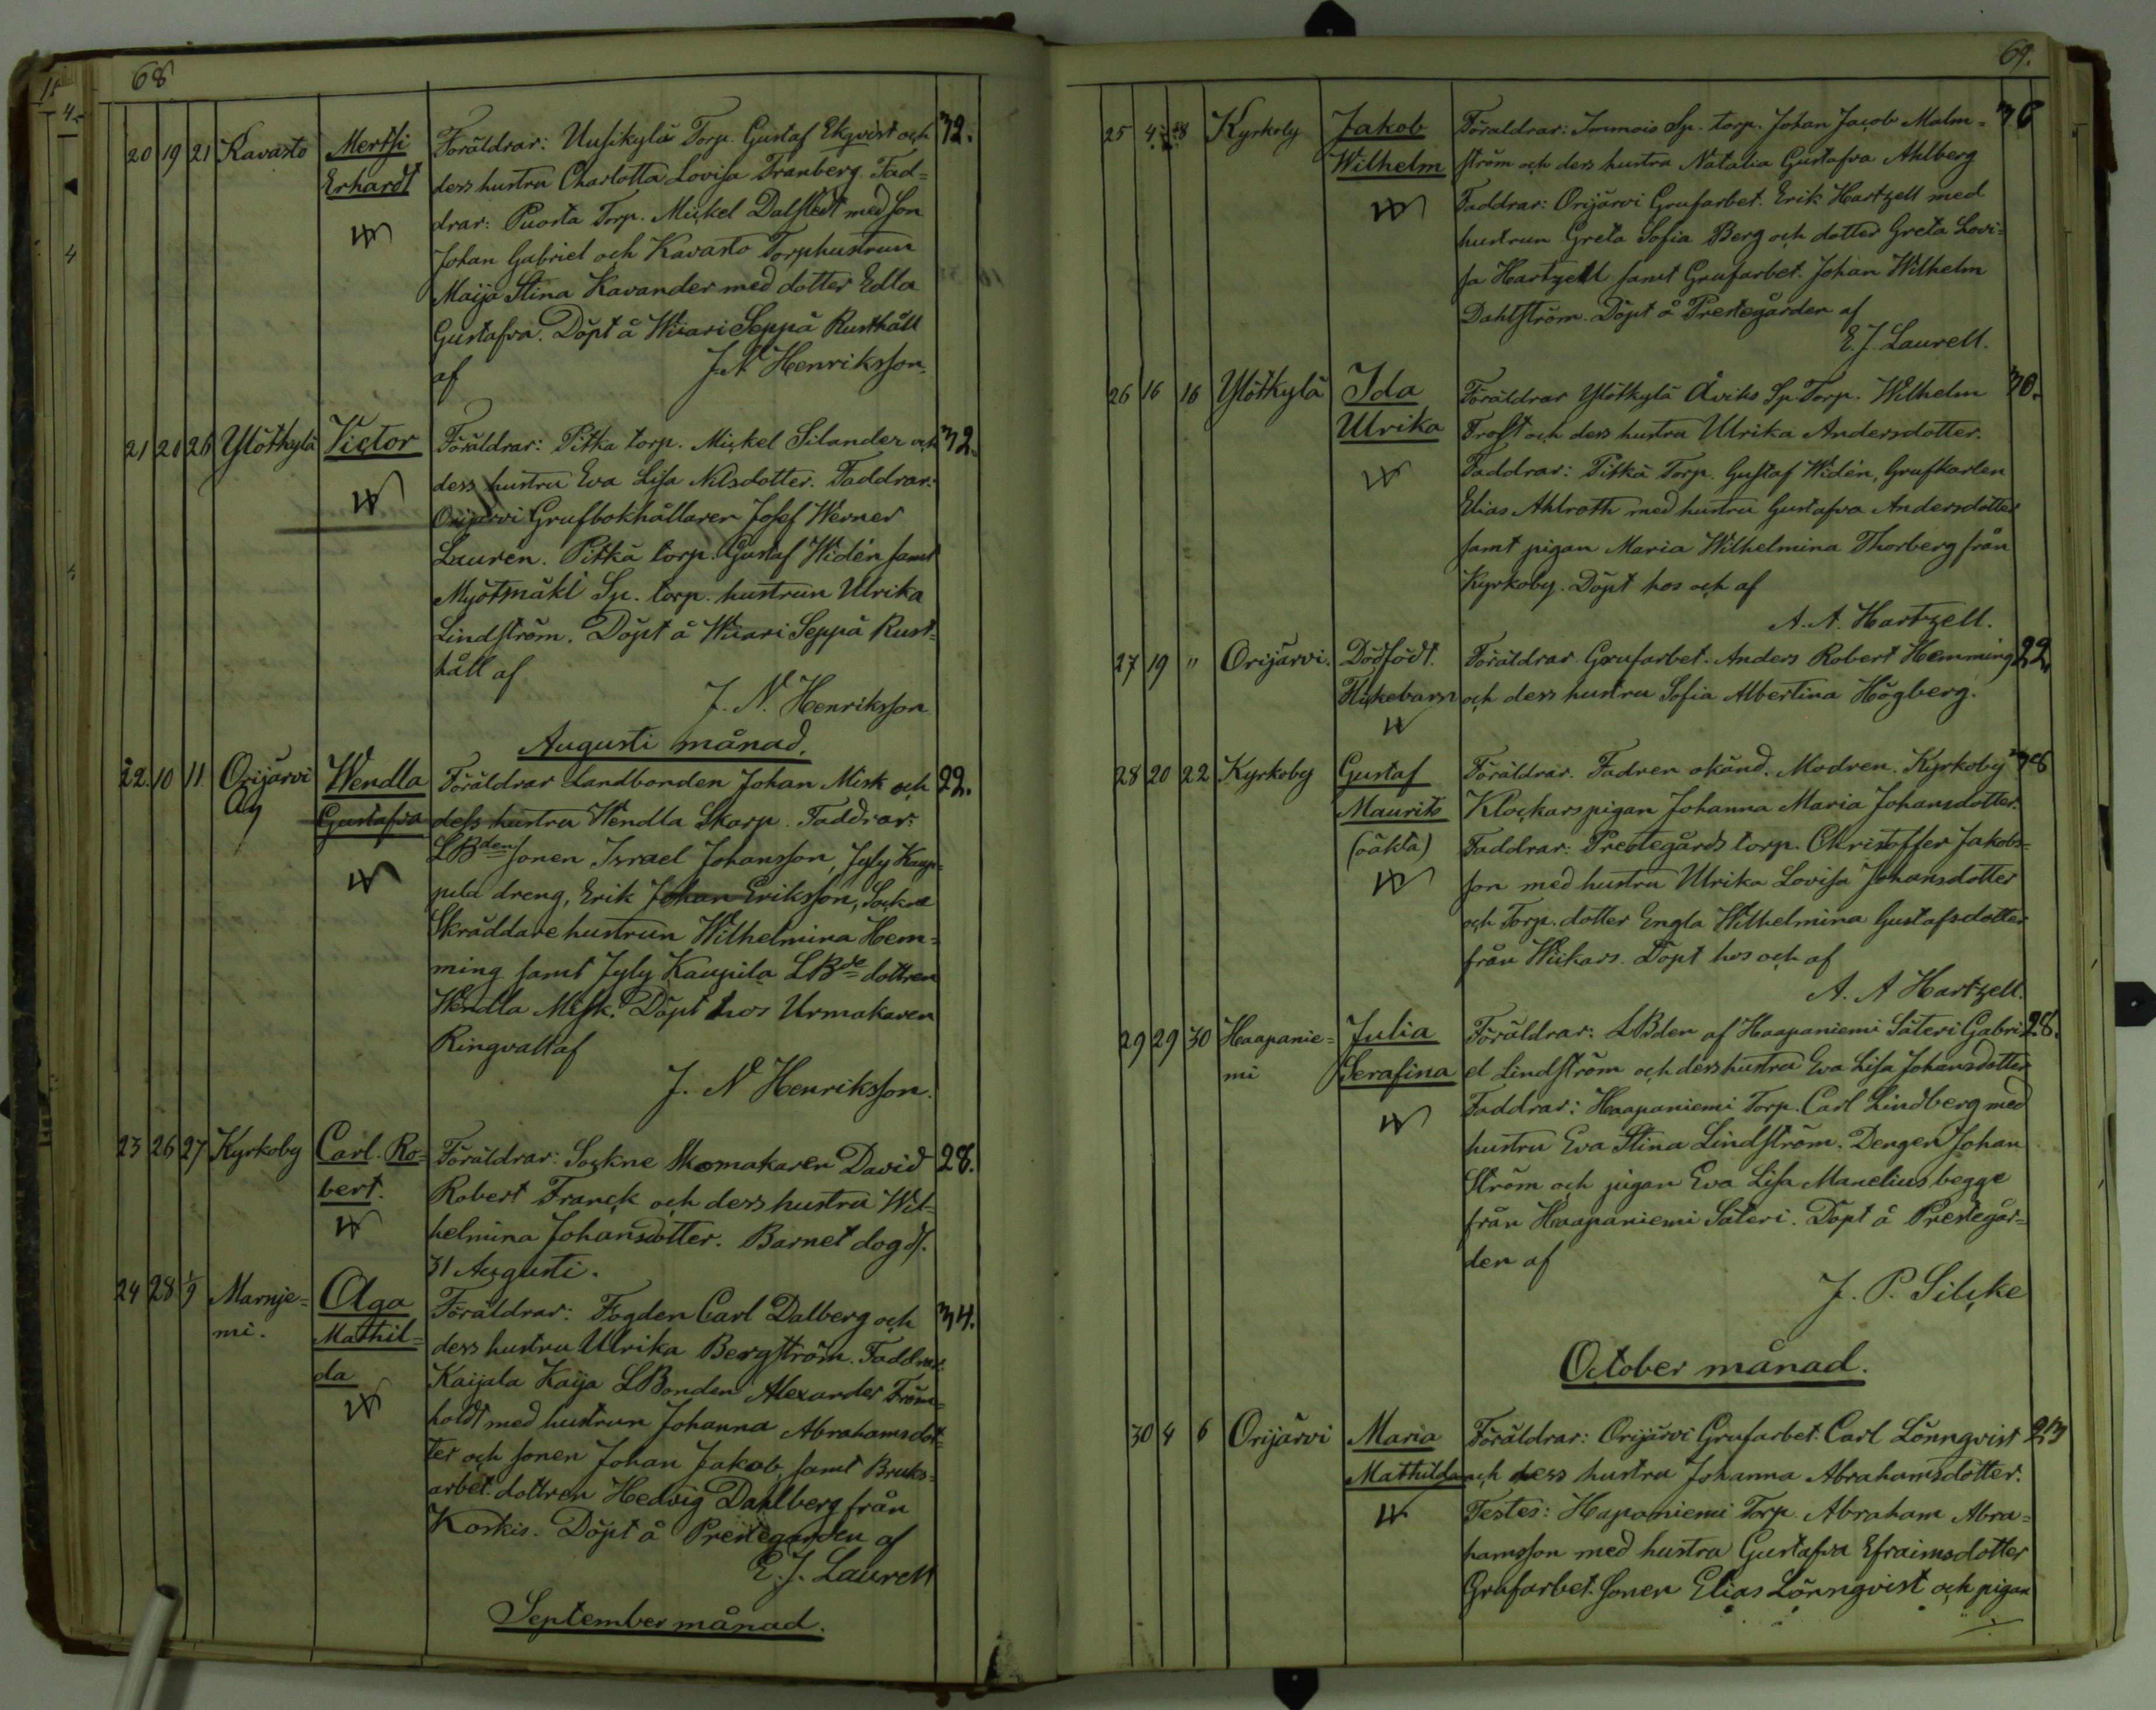 68
20 19 21 Kavasto Mertsi Föräldrar: Uusikylä Torp. Gustaf Ekqvist och 32.
Erhardt dess hustru Charlotta Lovisa Franberg. Fad=
drar: Puosta Torp. Mickel Dalstedt med son
Johan Gabriel och Kavasto Torphustrun
Maija Stina Kavander med dotter Edla
Gustafva. Döpt å Wiiari Seppä Rusthåll
af J. N. Henriksson.
21 20 26 Ylötkylä Victor Föräldrar: Pitkä torp. Mickel Silander och 32.
dess hustru Eva Lisa Nilsdotter. Faddrar:
Orijärvi Grufbokhållaren Josef Werner
Laurén. Pitkä torp. Gustaf Widén samt
Myötmäki Sp. torp. hustrun Ulrika
Lindström. Döpt å Wiiari Seppä Rust=
håll af
J. N. Henriksson
Augusti månad.
22. 10 11 Orijärvi Wendla Föräldrar Landbonden Johan Misk och 22.
Gustafva dess hustru Wendla Skarp. Faddrar:
LBden sonen Israel Johansson, Jyly Kaup=
pila dreng, Erik Johan Eriksson, Sockne
Skräddare hustrun Wilhelmina Hem=
ming samt Jyly Kaupila LBde dottren
Wendla Misk. Döpt hos Urmakaren
Ringvall af
J. N Henriksson.
23 26 27 Kyrkoby Carl Ro= Föräldrar: Sockne Skomakaren David 28.
bert. Robert Franck och dess hustru Wil=
helmina Johansdotter. Barnet dog d.
31 Augusti.
24 28 1/9 Marnje= Aga Föräldrar: Fogden Carl Dalberg och 34.
mi. Mathil= dess hustru Ulrika Bergström. Faddrar:
da Kaijala Kaija LBonden Alexander Tröm=
holdt med hustrun Johanna Abrahamsdot=
ter och sonen Johan Jakob, samt Bruks=
arbet. dottren Hedvig Dahlberg från
Koskis. Döpt å Prestegården af
E. J. Laurell
September månad.
69.
25 4 8 Kyrkoby Jakob Föräldrar: Sp. torp. Johan Jacob Malm= 36
Wilhelm ström och dess hustru Natalia Gustafva Ahlberg
Faddrar: Orijärvi Grufarbet. Erik Hartzell med
hustrun Greta Sofia Berg och dotter Greta Lovi=
sa Hartzell samt Grufarbet. Johan Wilhelm
Dahlström. Döpt å Prestegården af
E. J. Laurell.
26 16 16 Ylötkylä Ida Föräldrar Ylötkylä Åviks Sp. Torp. Wilhelm 30.
Ulrika Trost och dess hustru Ulrika Andersdotter.
Faddrar: Pitkä Torp. Gustaf Widén, Grufkarlen
Elias Ahlroth med hustru Gustafva Andersdotter
samt pigan Maria Wilhelmina Thorberg från
Kyrkoby. Döpt hos och af
A. A. Hartzell.
27 19 " Orijärvi. Dödfödt. Föräldrar Grufarbet. Anders Robert Hemming 22.
Flickebarn och dess hustru Sofia Albertina Högberg.
28 20 22 Kyrkoby Gustaf Föräldrar. Fadren okänd. Modren. Kyrkoby 38
Maurits Klockarspigan Johanna Maria Johansdotter.
(oäkta) Faddrar: Prestegårds torp. Christoffer Jakobs=
son med hustru Ulrika Lovisa Johansdotter
och Torp. dotter Engla Wilhelmina Gustafsdotter
från Wiikars. Döpt hos och af
A. A Hartzell.
29 29 30 Haapanie= Julia Föräldrar: LBden af Haapaniemi Säteri Gabri= 28.
mi Serafina el Lindström och dess hustru Eva Lisa Johansdotter
Faddrar: Haapaniemi Torp. Carl Lindberg med
hustru Eva Stina Lindström. Dengen Johan
Ström och pigan Eva Lisa Manelius begge
från Haapaniemi Säteri. Döpt å Prestegår=
den af
J. P. Silcke
October månad.
30 4 6 Orijärvi Maria Föräldrar: Orijärvi Grufarbet. Carl Lönnqvist 23
Mathilda och dess hustru Johanna Abrahamsdotter.
Testes: Hapaniemi Torp. Abraham Abra=
hamsson med hustru Gustafva Efraimsdotter
Grufarbet. sonen Elias Lönnqvist och pigan